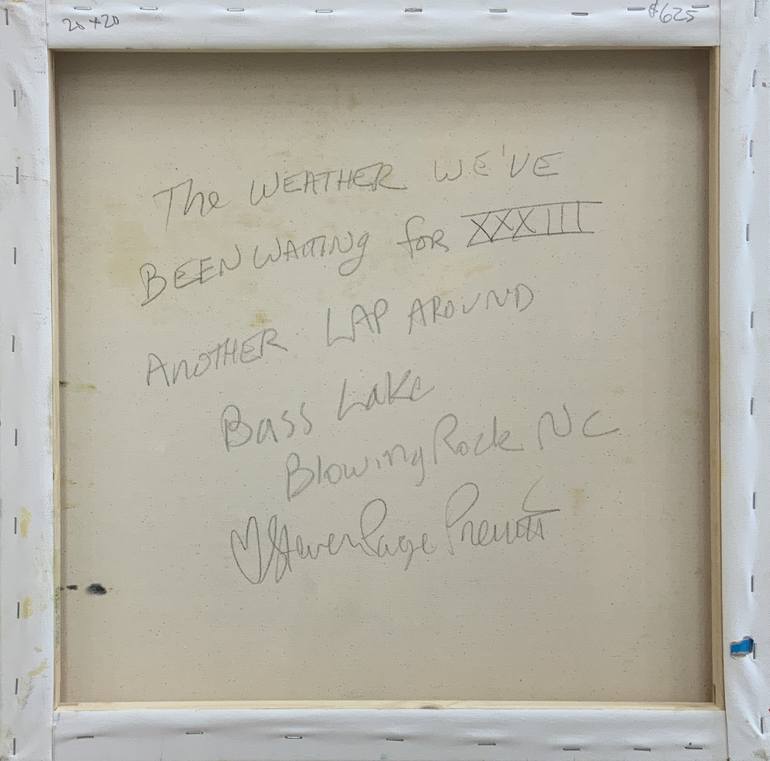 20x20
$625
The WEATHER WE'VE
BEEN WAITING for XXXIII
ANOTHER LAP AROUND
Bass Lake
Blowing Rock NC
♡ Steven Page Prewitt